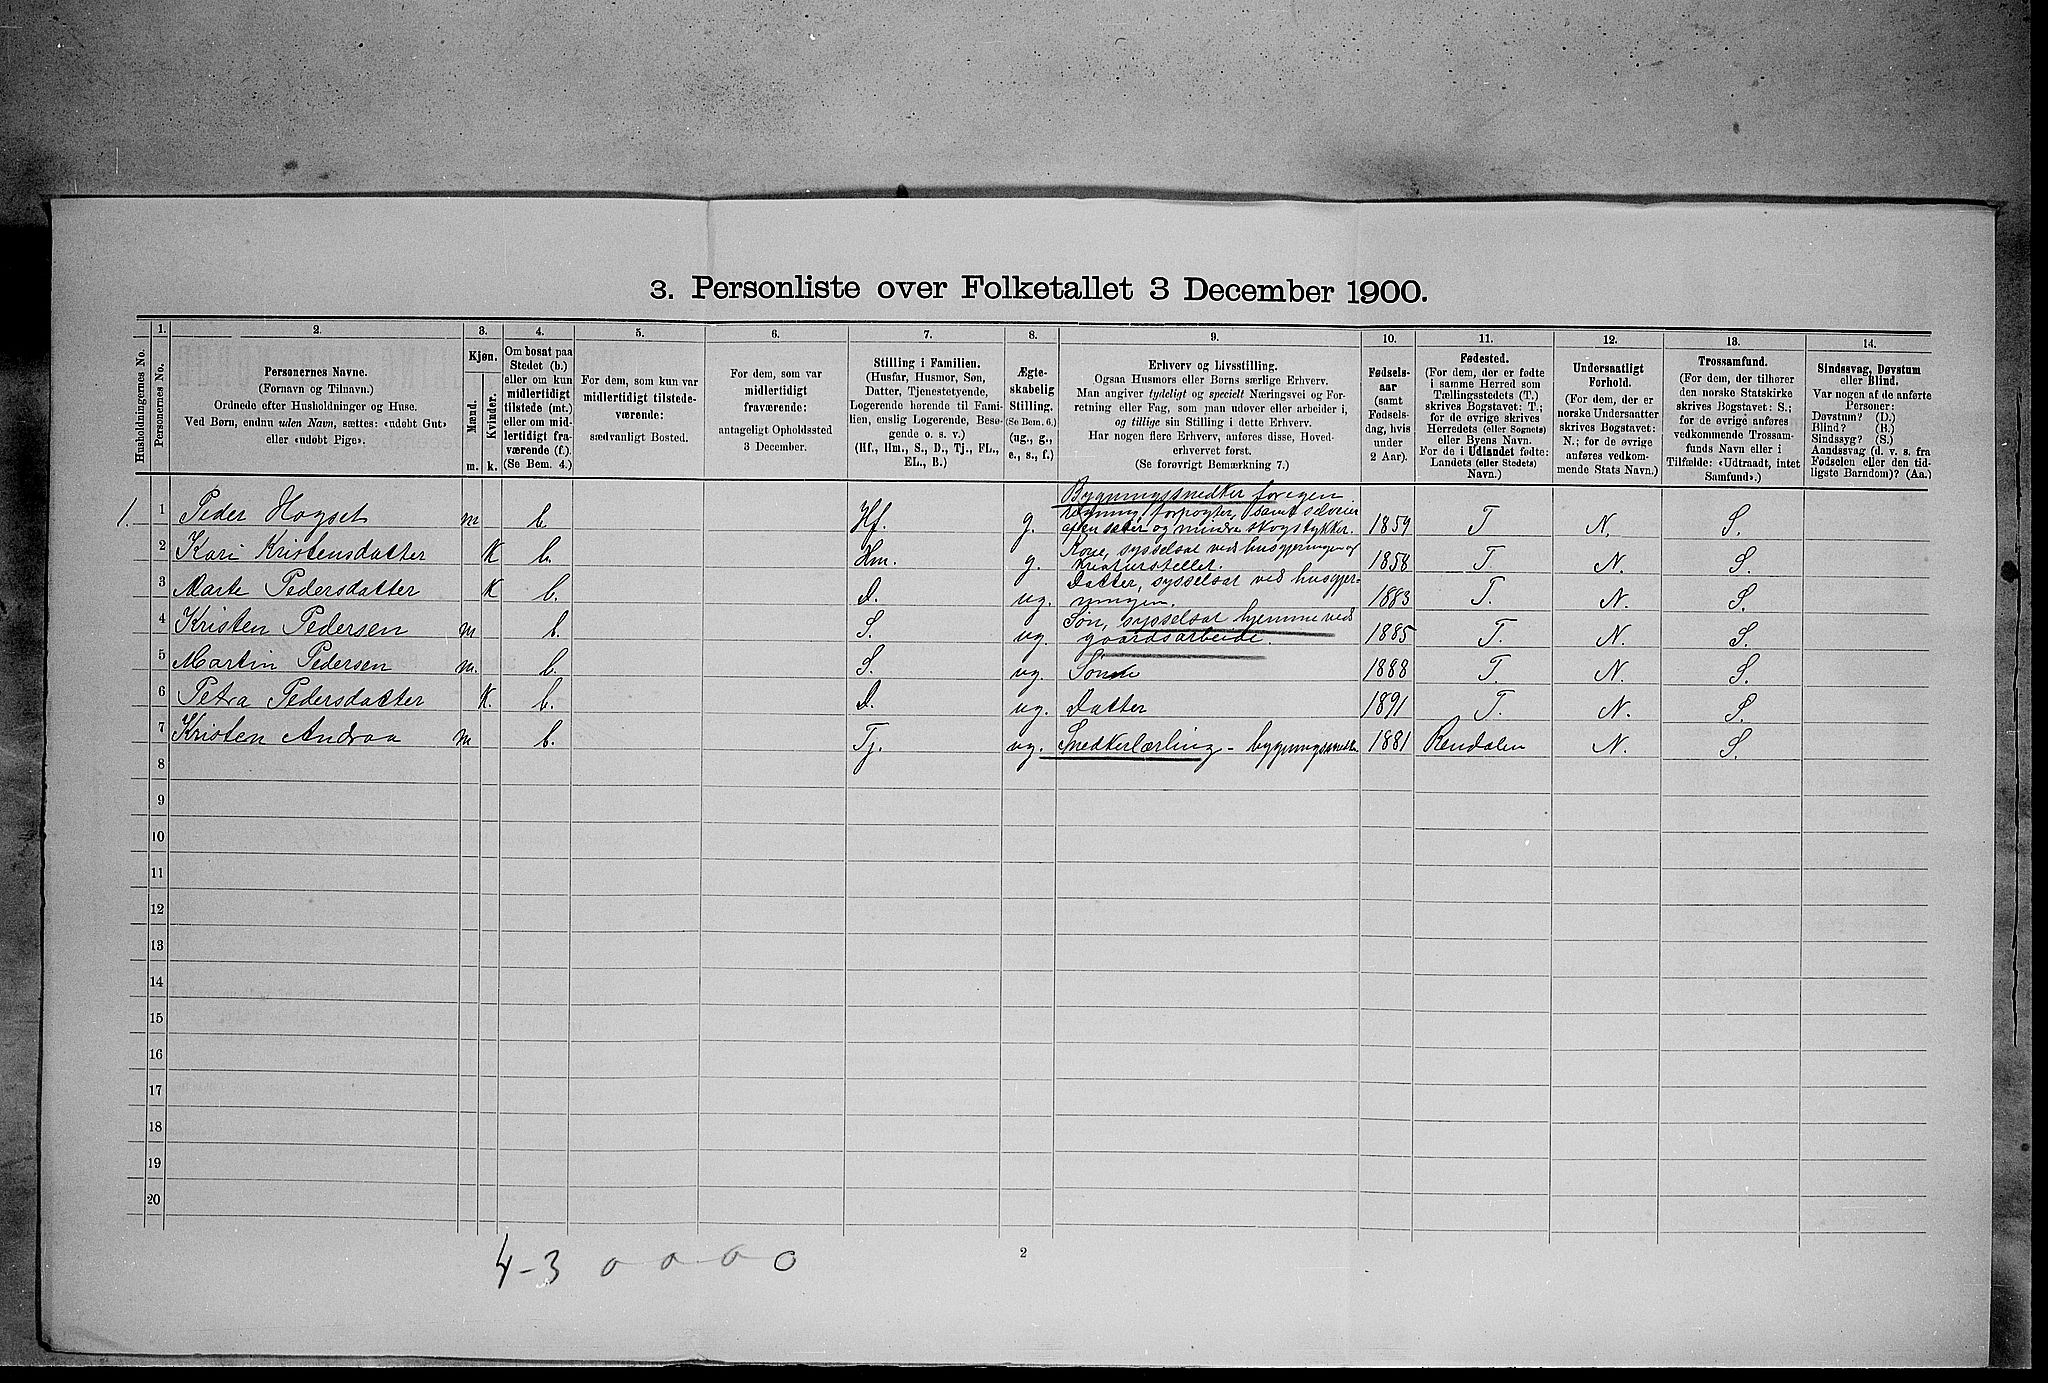 3. Personliste over Folketallet 3 December 1900.
Husholdningernes No.
1.
Personernes No.
2.
Personernes Navne.
(Fornavn og Tilnavn.)
Ordnede efter Husholdninger og Huse.
Ved Børn, endnu uden Navn, sættes: «udøbt Gut»
eller «udøbt Pige».
3.
Kjøn.
Mænd.
Kvinder.
m.
k.
4.
Om bosat paa
Stedet (b.)
eller om kun
midlertidigt
tilstede (mt.)
eller om mid-
lertidigt fra-
værende (f.).
(Se Bem. 4.)
5.
For dem, som kun var
midlertidigt tilstede-
værende:
sædvanligt Bosted.
6.
For dem, som var
midlertidigt
fraværende:
antageligt Opholdssted
3 December.
7.
Stilling i Familien.
(Husfar, Husmor, Søn,
Datter, Tjenestetyende,
Logerende hørende til Fami-
lien, enslig Logerende, Besø-
gende o. s. v.)
(Hf., Hm., S., D., Tj., FL.,
EL., B.)
8.
Ægte-
skabelig
Stilling.
(Se Bem. 6.)
(ug., g.,
e., s., f.)
9.
Erhverv og Livsstilling.
Ogsaa Husmors eller Børns særlige Erhverv.
Man angiver tydeligt og specielt Næringsvei og For-
retning eller Fag, som man udøver eller arbeider i,
og tillige sin Stilling i dette Erhverv.
Har nogen flere Erhverv, anføres disse, Hoved-
erhvervet først.
(Se forøvrigt Bemærkning 7.)
10.
Fødsels-
aar
(samt
Fødsels-
dag, hvis
under
2 Aar).
11.
Fødested.
(For dem, der er fødte
i samme Herred som
Tællingsstedets (T.)
skrives Bogstavet: T.;
for de øvrige skrives
Herredets (eller Sognets)
eller Byens Navn.
For de i Udlandet fødte:
Landets (eller Stedets)
Navn.)
12.
Undersaatligt
Forhold.
(For dem, der er
norske Undersaatter
skrives Bogstavet:
N.; for de øvrige
anføres vedkom-
mende Stats Navn.)
13.
Trossamfund.
(For dem, der tilhører
den norske Statskirke
skrives Bogstavet: S.;
for de øvrige anføres
vedkommende Trossam-
funds Navn eller i
Tilfælde: «Udtraadt, intet
Samfund».)
14.
Sindssvag, Døvstum
eller Blind.
Var nogen af de anførte
Personer:
Døvstum? (D.)
Blind? (B.)
Sindssyg? (S.)
Aandssvag (d. v. s. fra
Fødselen eller den tid-
ligste Barndom)? (Aa.)
1. 1 Peder Hogset m b. Hf. g. Bygningssnedker for egen
regning, forpagter, samt selveier
af en sæter og mindre skogstykker. 1859 T N. S.
2 Kari Kristensdatter K b. Hm. g. Kone, sysselsat ved husgjerningen og
kreaturstellet. 1858 T N. S.
3 Marte Pedersdatter K b. D. ug. Datter, sysselsat ved husgjer-
ningen. 1883 T. N. S.
4 Kristen Pedersen m b. S. ug. Søn, sysselsat hjemme ved
gaardsarbeide. 1885 T. N. S.
5 Martin Pedersen m. b. S. ug. 1888 T. N. S.
6 Petra Pedersdatter K. b. D. ug. Datter 1891 T. N. S.
7 Kristen Andraa m b. Tj. ug. Snedkerlærling - 1881 Rendalen N. S.
8
9
10
11
12
13
14
15
16
17
18
19
20
4-3 0 0 0 0
2